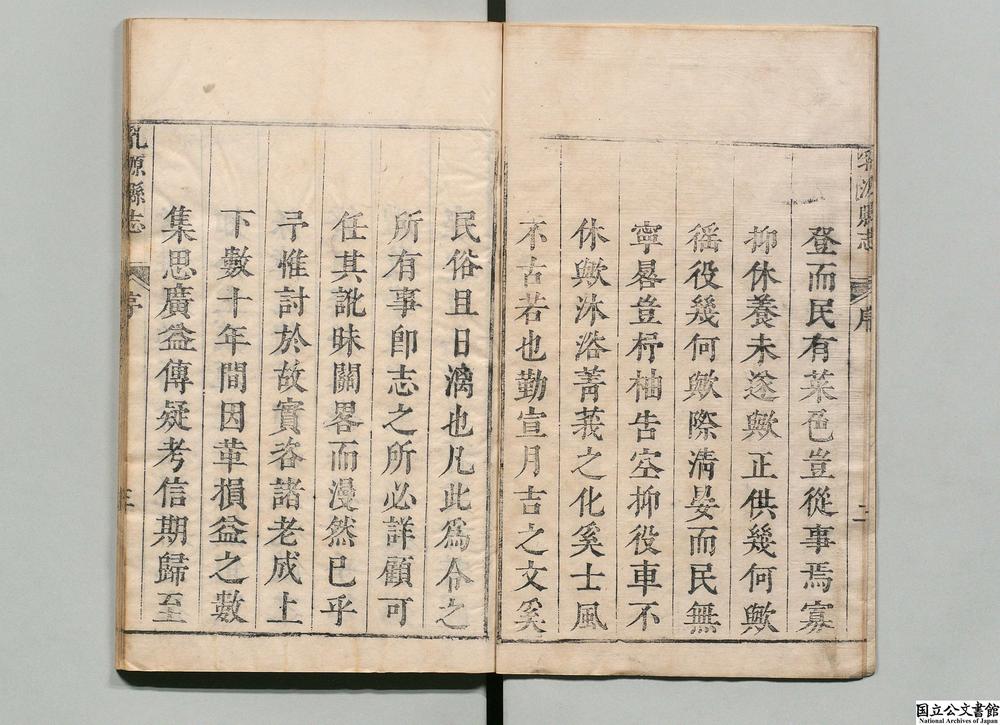 登而民有菜色豈從事焉寡
抑休養未遂歟正供幾何歟
徭役幾何歟際淸晏而民無
寧晷豈杼柚告空抑役車不
休歟沐浴菁莪之化奚士風
不古若也勤宣月吉之文奚
民俗且日漓也凡此爲令之
所有事卽志之所必詳顧可
任其訛昧闕畧而漫然已乎
予惟討於故實咨諸老成上
下數十年間因革損益之數
集思廣益傳疑考信期歸至
乳源縣志
序
二
乳源縣志
序
三
国立公文書館
National Archives of Japan